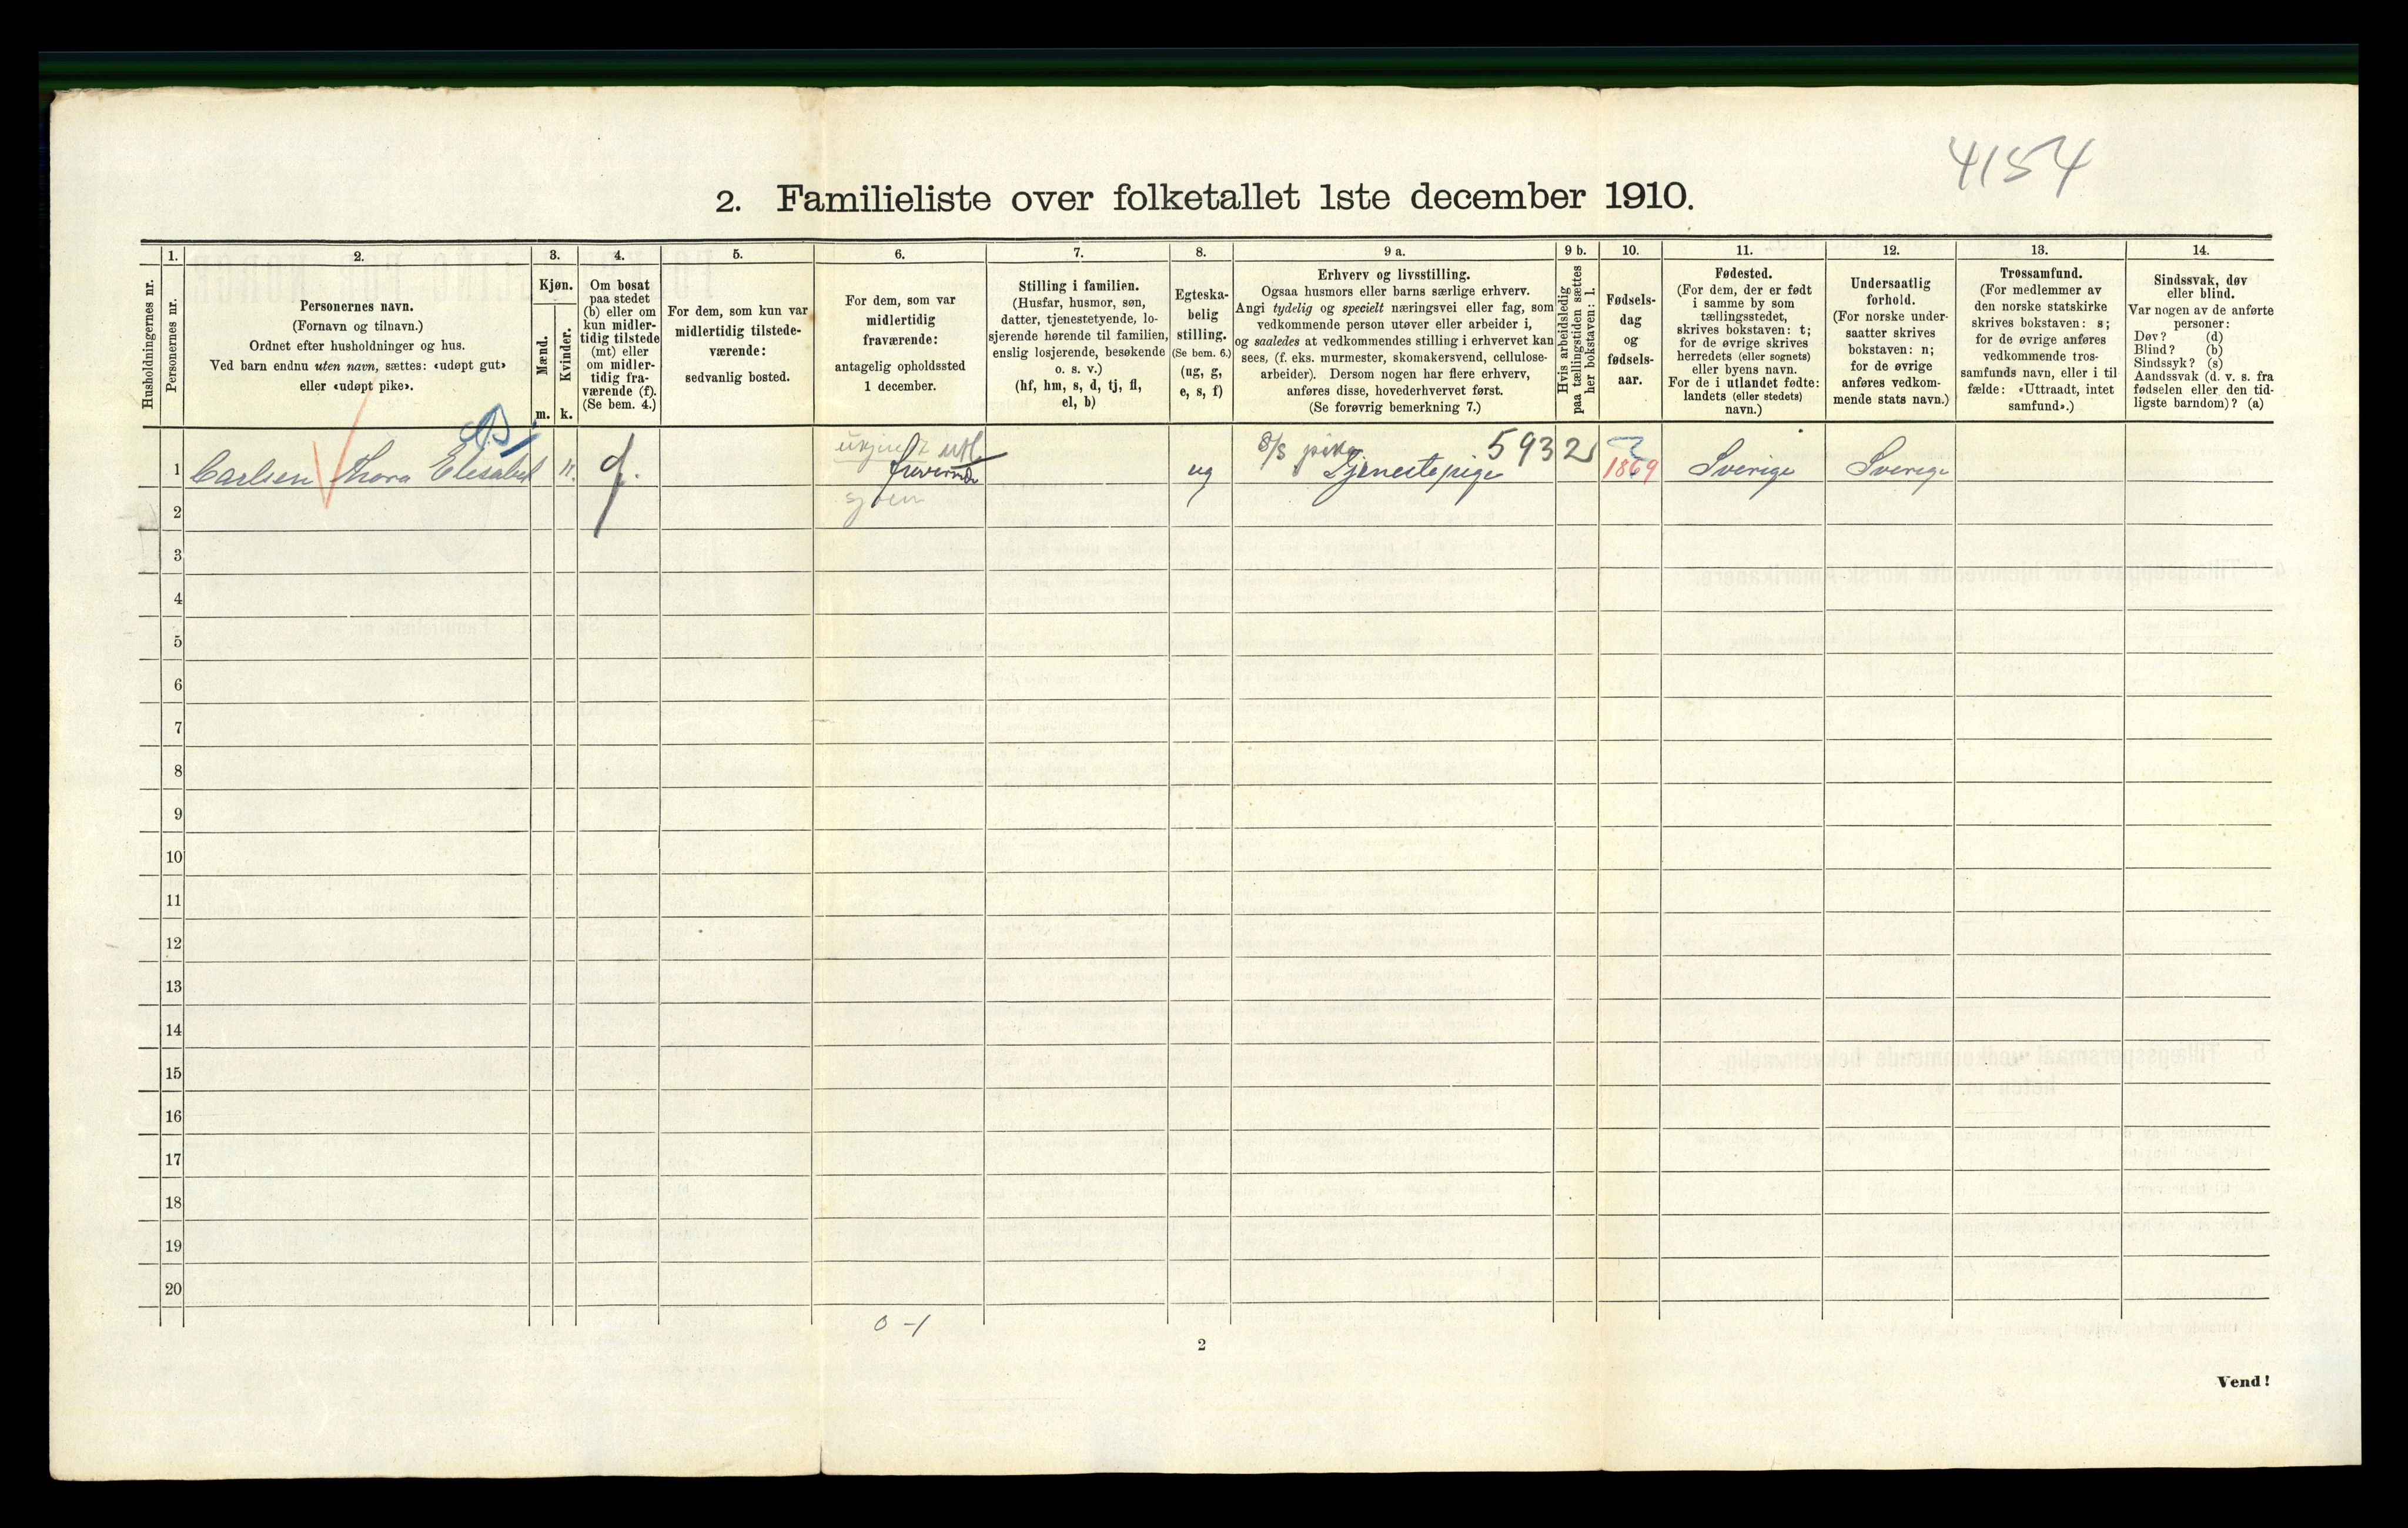 4154
2. Familieliste over folketallet 1ste december 1910.
1. 2. 3. 4. 5. 6. 7. 8. 9 a. 9 b. 10. 11. 12. 13. 14.
Husholdningernes nr.
Personernes nr.
Personernes navn.
(Fornavn og tilnavn.)
Ordnet efter husholdninger og hus.
Ved barn endnu uten navn, sættes: «udøpt gut»
eller «udøpt pike».
Kjøn.
Mænd.
m.
Kvinder.
k.
Om bosat
paa stedet
(b) eller om
kun midler-
tidig tilstede
(mt) eller
om midler-
tidig fra-
værende (f).
(Se bem. 4.)
For dem, som kun var
midlertidig tilstede-
værende:
sedvanlig bosted.
For dem, som var
midlertidig
fraværende:
antagelig opholdssted
1 december.
Stilling i familien.
(Husfar, husmor, søn,
datter, tjenestetyende, lo-
sjerende hørende til familien,
enslig losjerende, besøkende
o. s. v.)
(hf, hm, s, d, tj, fl,
el, b)
Egteska-
belig
stilling.
(Se bem. 6.)
(ug, g,
e, s, f)
Erhverv og livsstilling.
Ogsaa husmors eller barns særlige erhverv.
Angi tydelig og specielt næringsvei eller fag, som
vedkommende person utøver eller arbeider i,
og saaledes at vedkommendes stilling i erhvervet kan
sees, (f. eks. murmester, skomakersvend, cellulose-
arbeider). Dersom nogen har flere erhverv,
anføres disse, hovederhvervet først.
(Se forøvrig bemerkning 7.)
Hvis arbeidsledig
paa tællingstiden sættes
her bokstaven: l.
Fødsels-
dag
og
fødsels-
aar.
Fødested.
(For dem, der er født
i samme by som
tællingsstedet,
skrives bokstaven: t;
for de øvrige skrives
herredets (eller sognets)
eller byens navn.
For de i utlandet fødte:
landets (eller stedets)
navn.)
Undersaatlig
forhold.
(For norske under-
saatter skrives
bokstaven: n;
for de øvrige
anføres vedkom-
mende stats navn.)
Trossamfund.
(For medlemmer av
den norske statskirke
skrives bokstaven: s;
for de øvrige anføres
vedkommende tros-
samfunds navn, eller i til
fælde: «Uttraadt, intet
samfund».)
Sindssvak, døv
eller blind.
Var nogen av de anførte
personer:
Døv? (d)
Blind? (b)
Sindssyk? (s)
Aandssvak (d. v. s. fra
fødselen eller den tid-
ligste barndom)? (a)
ukjendt utl. S/S pike 5932
1 Carlsen Thora Elisabet k. f. ug Tjenestepige 1869 Sverige Sverige
2
3
4
5
6
7
8
9
10
11
12
13
14
15
16
17
18
19
20
0 - 1
2
Vend!